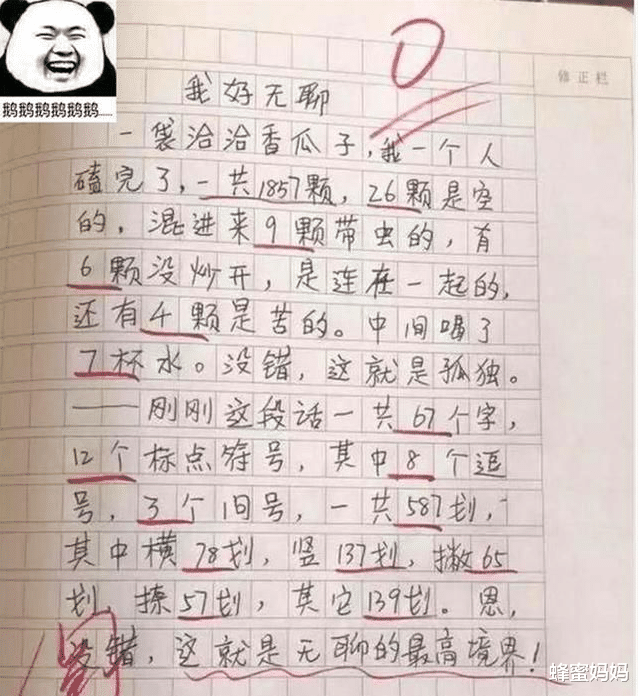 0
修正栏
鹅鹅鹅鹅鹅鹅......
我好无聊
一袋洽洽香瓜子,我一个人
磕完了,一共1857颗,26颗是空
的,混进来9颗带虫的,有
6颗没炒开,是连在一起的,
还有4颗是苦的。中间喝了
7杯水。没错,这就是孤独。
——刚刚这段话一共67个字,
12个标点符号,其中8个逗
号,3个旧号,一共587划,
其中横78划,竖137划,撇65
划,捺57划,其它139划。恩,
没错,这就是无聊的最高境界!
蜂蜜妈妈